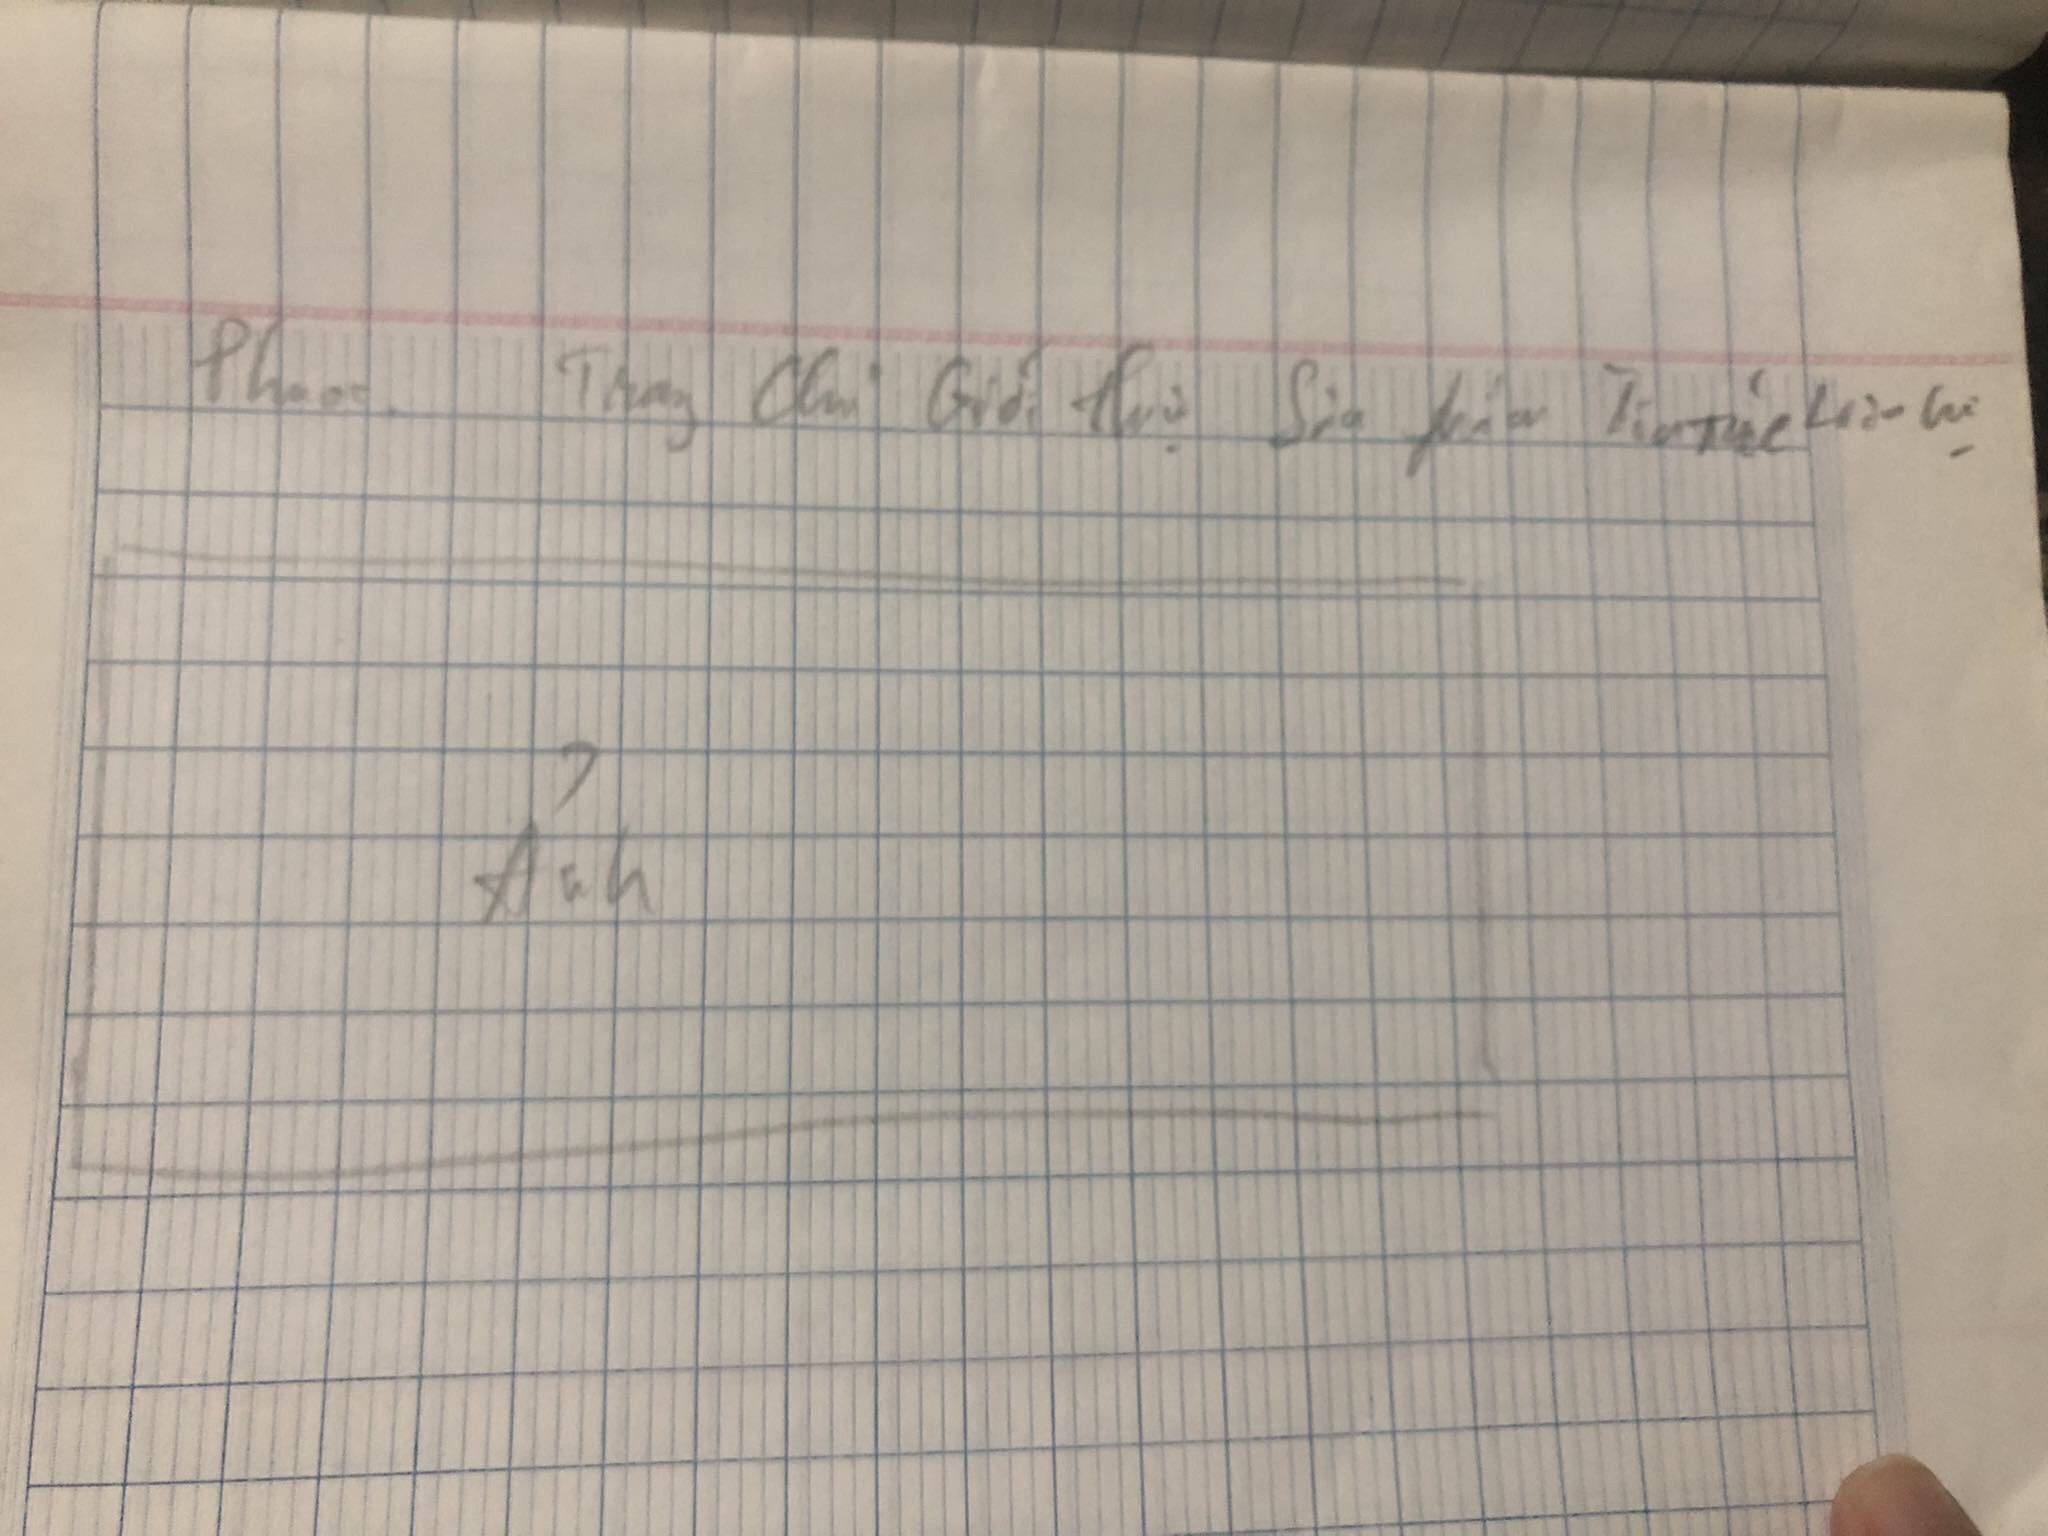 Trang Chủ Giới thiệu Sản phẩm Tin tức Liên hệ
Ảnh